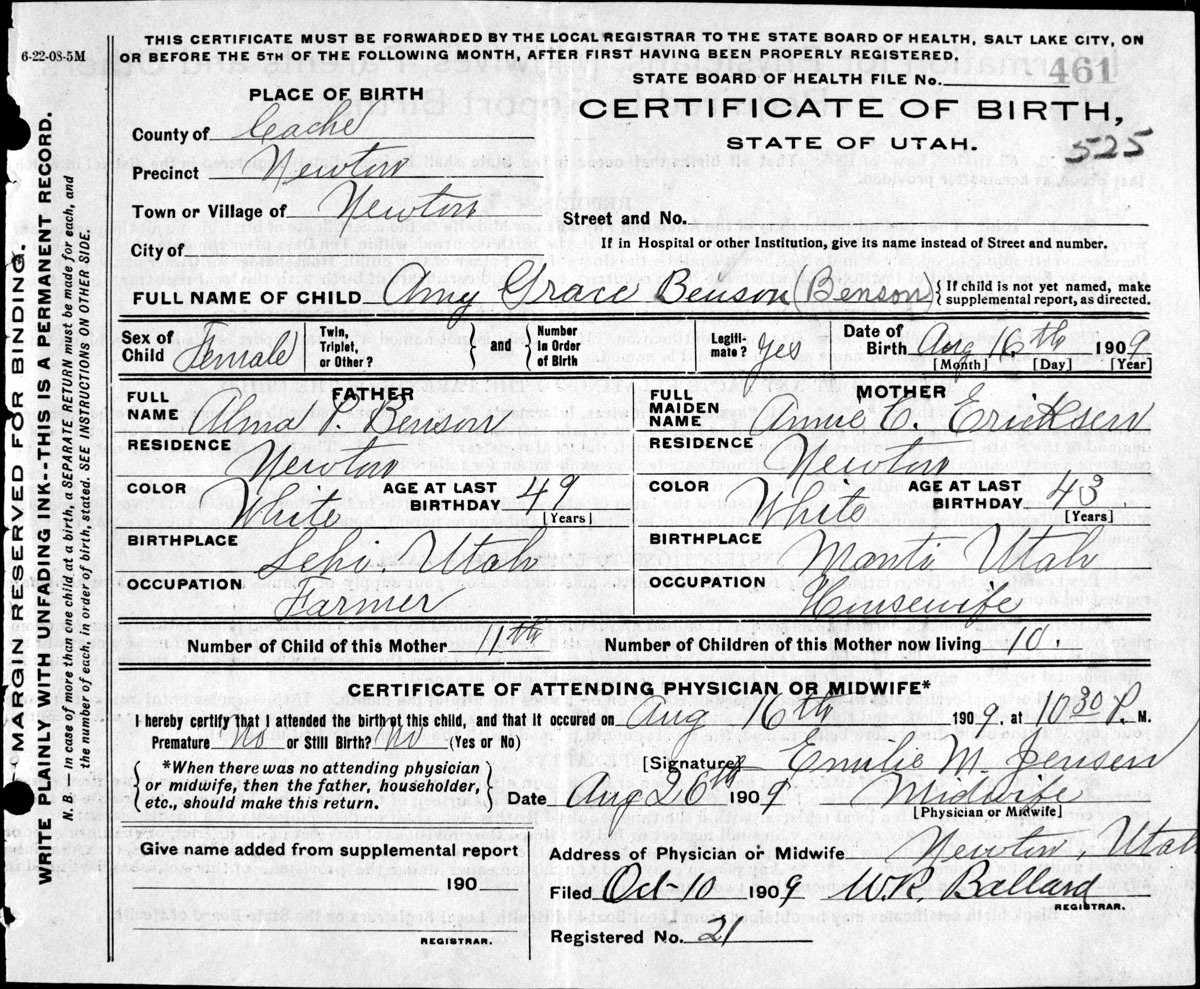 6-22-08-5M
THIS CERTIFICATE MUST BE FORWARDED BY THE LOCAL REGISTRAR TO THE STATE BOARD OF HEALTH, SALT LAKE CITY, ON
OR BEFORE THE 5TH OF THE FOLLOWING MONTH, AFTER FIRST HAVING BEEN PROPERLY REGISTERED.
STATE BOARD OF HEALTH FILE No. 461
CERTIFICATE OF BIRTH,
STATE OF UTAH.
525
PLACE OF BIRTH
County of Cache
Precinct Newton
Town or Village of Newton
City of
Street and No.
If in Hospital or other Institution, give its name instead of Street and number.
FULL NAME OF CHILD Amy Grace Benson (Benson) { If child is not yet named, make
supplemental report, as directed.
Sex of Child Female
Twin, Triplet, or Other?
} and {
Number in Order of Birth
Legiti-mate? yes
Date of Birth Aug 16th 1909
[Month] [Day] [Year]
FATHER
FULL NAME Alma P. Benson
RESIDENCE Newton
COLOR White AGE AT LAST BIRTHDAY 49
[Years]
BIRTHPLACE Lehi Utah
OCCUPATION Farmer
MOTHER
FULL MAIDEN NAME Annie C. Ericksen
RESIDENCE Newton
COLOR White AGE AT LAST BIRTHDAY 43
[Years]
BIRTHPLACE Manti Utah
OCCUPATION Housewife
Number of Child of this Mother 11th Number of Children of this Mother now living 10.
CERTIFICATE OF ATTENDING PHYSICIAN OR MIDWIFE*
I hereby certify that I attended the birth of this child, and that it occured on Aug 16th 1909. at 10 30 P. M.
Premature No or Still Birth? No (Yes or No)
{ *When there was no attending physician
or midwife, then the father, householder,
etc., should make this return. }
[Signature] Emilie M. Jensen
Date Aug 26th 1909 Midwife
[Physician or Midwife]
Give name added from supplemental report
190
REGISTRAR.
Address of Physician or Midwife Newton, Utah
Filed Oct 10 1909 W.R. Ballard
REGISTRAR.
Registered No. 21
MARGIN RESERVED FOR BINDING.
WRITE PLAINLY WITH UNFADING INK--THIS IS A PERMANENT RECORD.
N. B. In case of more than one child at a birth, a SEPARATE RETURN must be made for each, and
the number of each, in order of birth, stated. SEE INSTRUCTION ON OTHER SIDE.